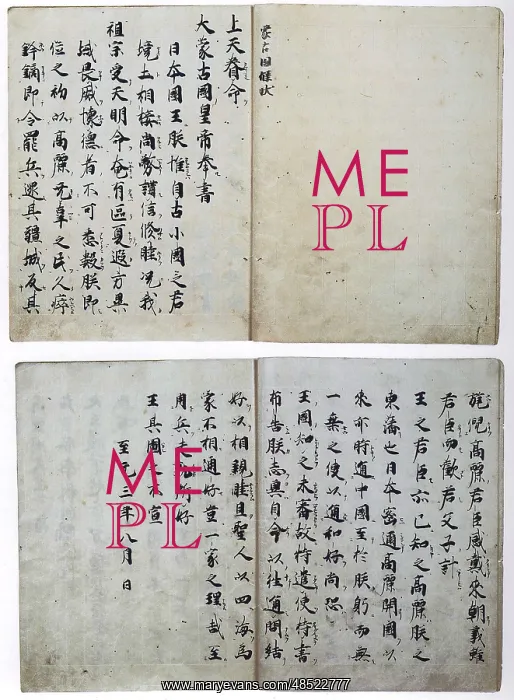 蒙古國牒状
上天眷命
大蒙古國皇帝奉書
日本國王朕惟自古小國之君
境土相接尚務講信修睦況我
祖宗受天明命奄有區夏遐方異
域畏威懷德者不可悉數朕即
位之初以高麗无辜之民久瘁
鋒鏑即令罷兵還其疆域反其
ME
PL
旄倪高麗君臣感戴來朝義雖
君臣而歡若父子計
王之君臣亦已知之高麗朕之
東藩也日本密通高麗開國以
來亦時通中國至於朕躬而無
一乗之使以通和好尚恐
王國知之未審故特遣使持書
布告朕志冀自今以往通問結
好以相親睦且聖人以四海為
家不相通好豈一家之理哉至
用兵夫孰所好
王其圖之不宣
至元三年八月日
ME
PL
www.maryevans.com/48522777